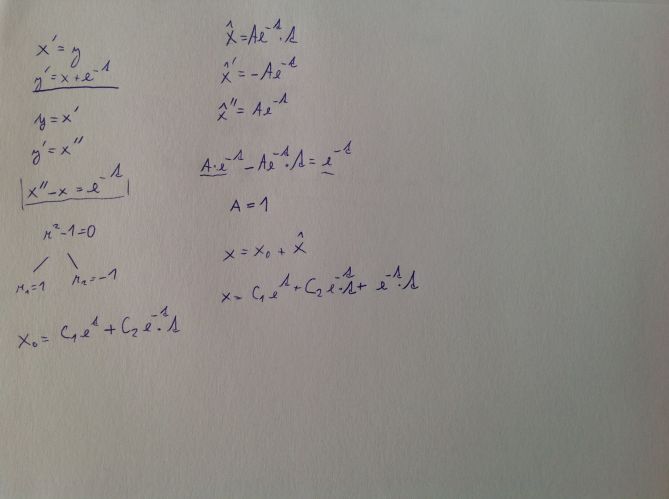 x' = y
y' = x + e⁻ᵗ
y = x'
y' = x''
x'' - x = e⁻ᵗ
r² - 1 = 0
r₁ = 1 r₂ = -1
x₀ = C₁eᵗ + C₂e⁻ᵗ · t
x̂ = Ae⁻ᵗ · t
x̂' = -Ae⁻ᵗ
x̂'' = Ae⁻ᵗ
A · e⁻ᵗ - Ae⁻ᵗ · t = e⁻ᵗ
A = 1
x = x₀ + x̂
x = C₁eᵗ + C₂e⁻ᵗ · t + e⁻ᵗ · t